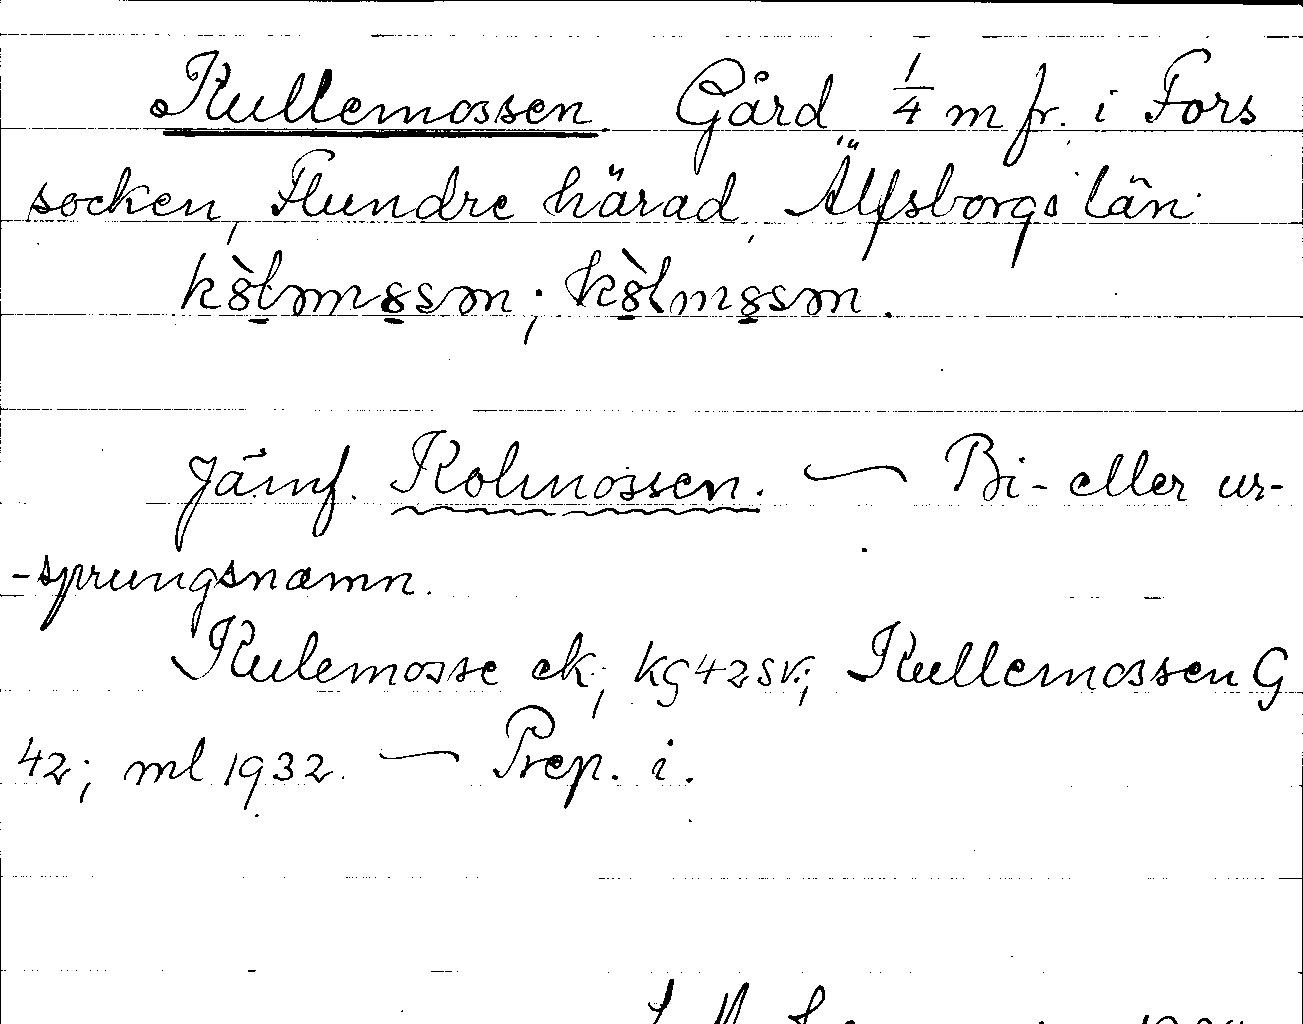 Kullemossen. Gård 1/4 m fr. i Fors
socken, Flundre härad, Älfsborgs län.
Jämf. Kolmossen. — Bi- eller ur-
-sprungsnamn.
Kulemosse ek; kg 42 sk; Kullemossen G
42; ml 1932. — Prep. i.